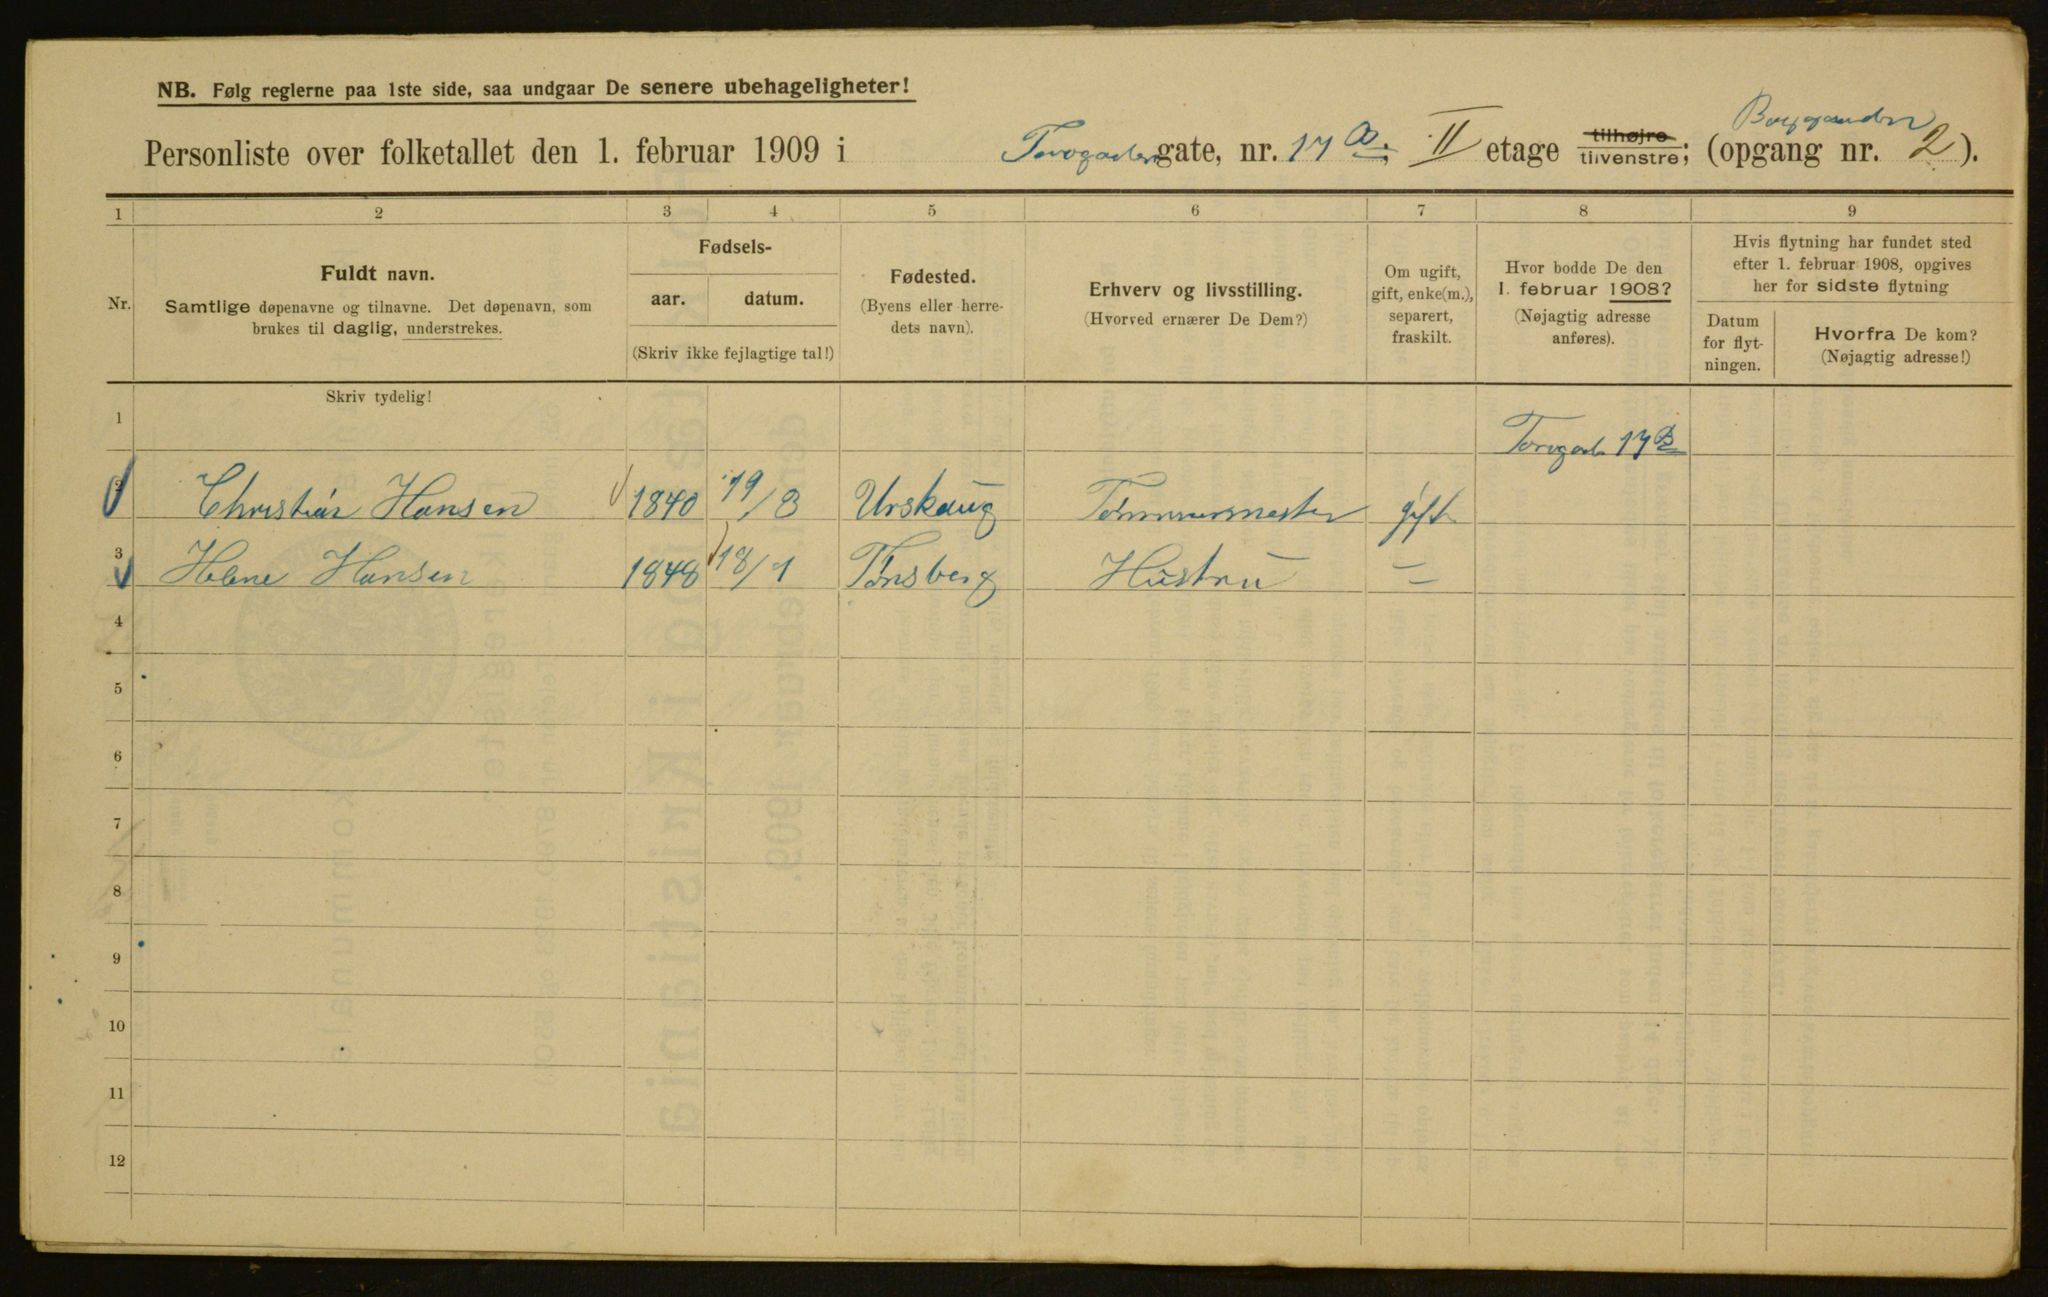 NB. Følg reglerne paa 1ste side, saa undgaar De senere ubehageligheter!
Personliste over folketallet den 1. februar 1909 i Torvgaden gate, nr. 17 B. II etage tilhøjre tilvenstre; (opgang nr. 2).
1 2 3 4 5 6 7 8 9
Nr.
Fuldt navn.
Samtlige døpenavne og tilnavne. Det døpenavn, som
brukes til daglig, understrekes.
Fødsels-
aar. datum.
(Skriv ikke fejlagtige tal!)
Fødested.
(Byens eller herre-
dets navn).
Erhverv og livsstilling.
(Hvorved ernærer De Dem?)
Om ugift,
gift, enke(m.),
separert,
fraskilt.
Hvor bodde De den
1. februar 1908?
(Nøjagtig adresse
anføres).
Hvis flytning har fundet sted
efter 1. februar 1908, opgives
her for sidste flytning
Datum
for flyt-
ningen.
Hvorfra De kom?
(Nøjagtig adresse!)
Skriv tydelig!
1 Torvgade 17 B
2 Christian Hansen 1840 19/8 Urskaug Tømmermester gift
3 Helene Hansen 1848 18/1 Tønsberg Hustru "
4
5
6
7
8
9
10
11
12